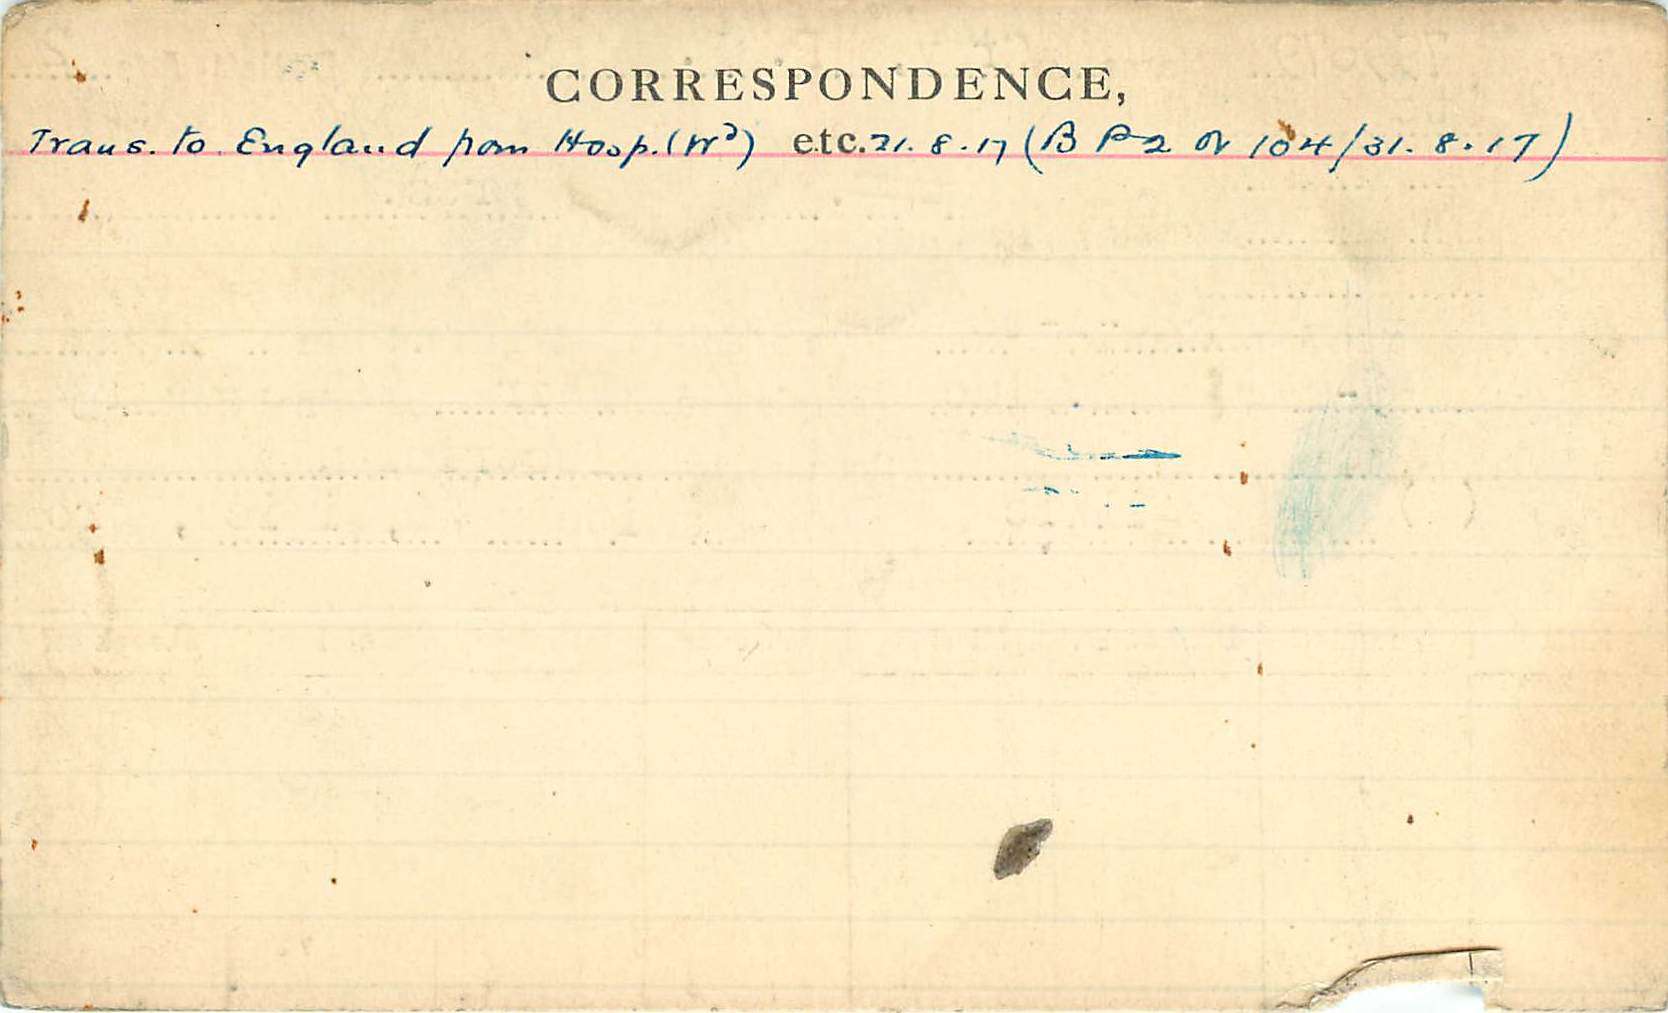 CORRESPONDENCE,
Trans. to England from Hosp. (Wd) etc. 21.8.17 (B P2 Or 104/31.8.17)